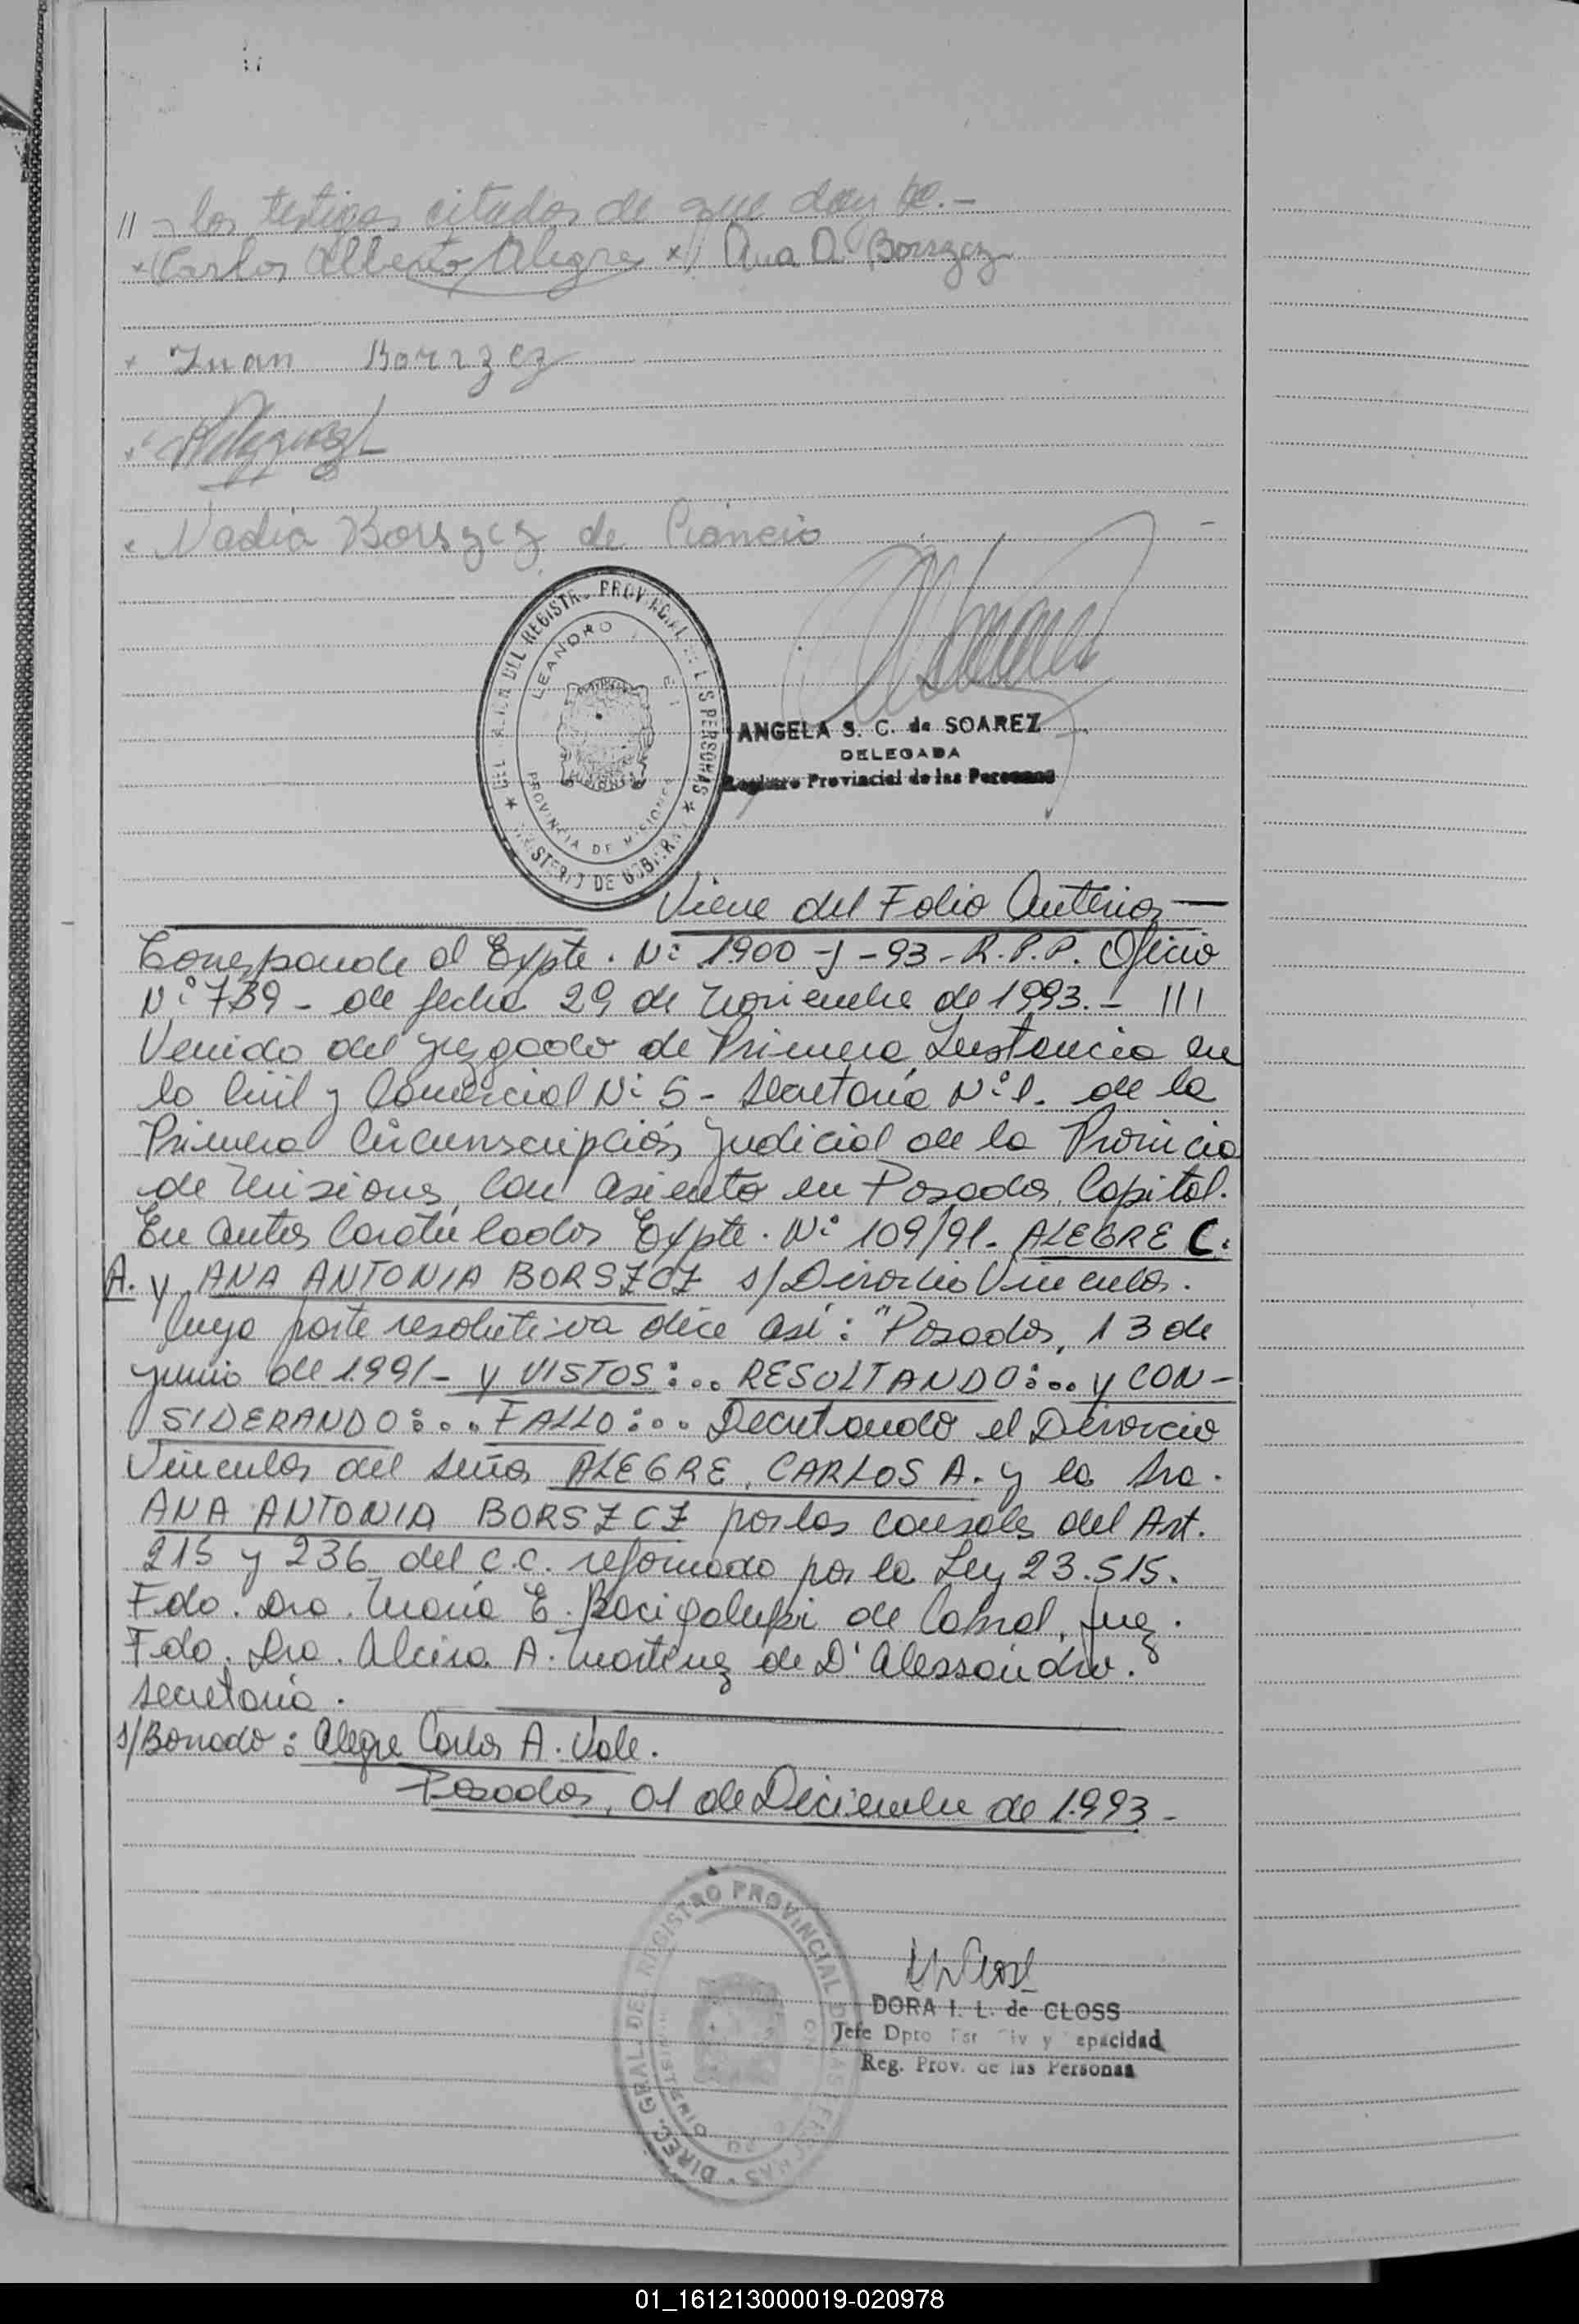 // los testigos citados de que doy fe.-
x Carlos Alberto Alegre x/ Ana A. Borszcz
x Juan Borszcz
x Nadia Borszcz de Ciancio
REGISTRO PROVINCIAL PERSONAS
LEANDRO
PROVINCIA DE MISIONES
ANGELA S. C. de SOAREZ
DELEGADA
Registro Provincial de las Personas
Viene del Folio Anterior
Corresponde al Expte. Nº 1900-J-93-R.P.P. Oficio
Nº 739- de fecha 29 de noviembre de 1993.- ///
Venido del Juzgado de Primera Instancia en
lo Civil y Comercial Nº 5- Secretaría Nº 1. de la
Primera Circunscripción Judicial de la Provincia
de Misiones, con asiento en Posadas, Capital.
En autos Caratulados Expte. Nº 109/91. ALEGRE C.
A. y ANA ANTONIA BORSZCZ s/Divorcio Vincular.
Cuya parte resolutiva dice así: "Posadas, 13 de
junio de 1991- y VISTOS:.. RESULTANDO:.. y CON-
SIDERANDO:... FALLO:.. Decretando el Divorcio
Vincular del señor ALEGRE, CARLOS A. y la Sra.
ANA ANTONIA BORSZCZ por las causales del Art.
215 y 236 del C.C. reformado por la Ley 23.515.
Fdo. Dra. María E. Bacigalupi de Cabral, Juez.
Fdo. Dra. Alcira A. Martinez de D'Alessandro.
Secretaria.
s/Borrado: Alegre Carlos A. Vale.
Posadas, 01 de Diciembre de 1.993-
DIREC. GRAL. DEL REGISTRO PROVINCIAL DE LAS PERSONAS
DORA I. L. de CLOSS
Jefe Dpto Est Civ y Capacidad
Reg. Prov. de las Personas
01_161213000019-020978